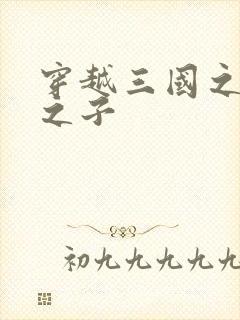 穿越三國之
之子
初九九九九九